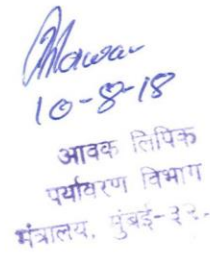 10-8-18
आवक लिपिक
पर्यावरण विभाग
मंत्रालय, मुंबई-३२.